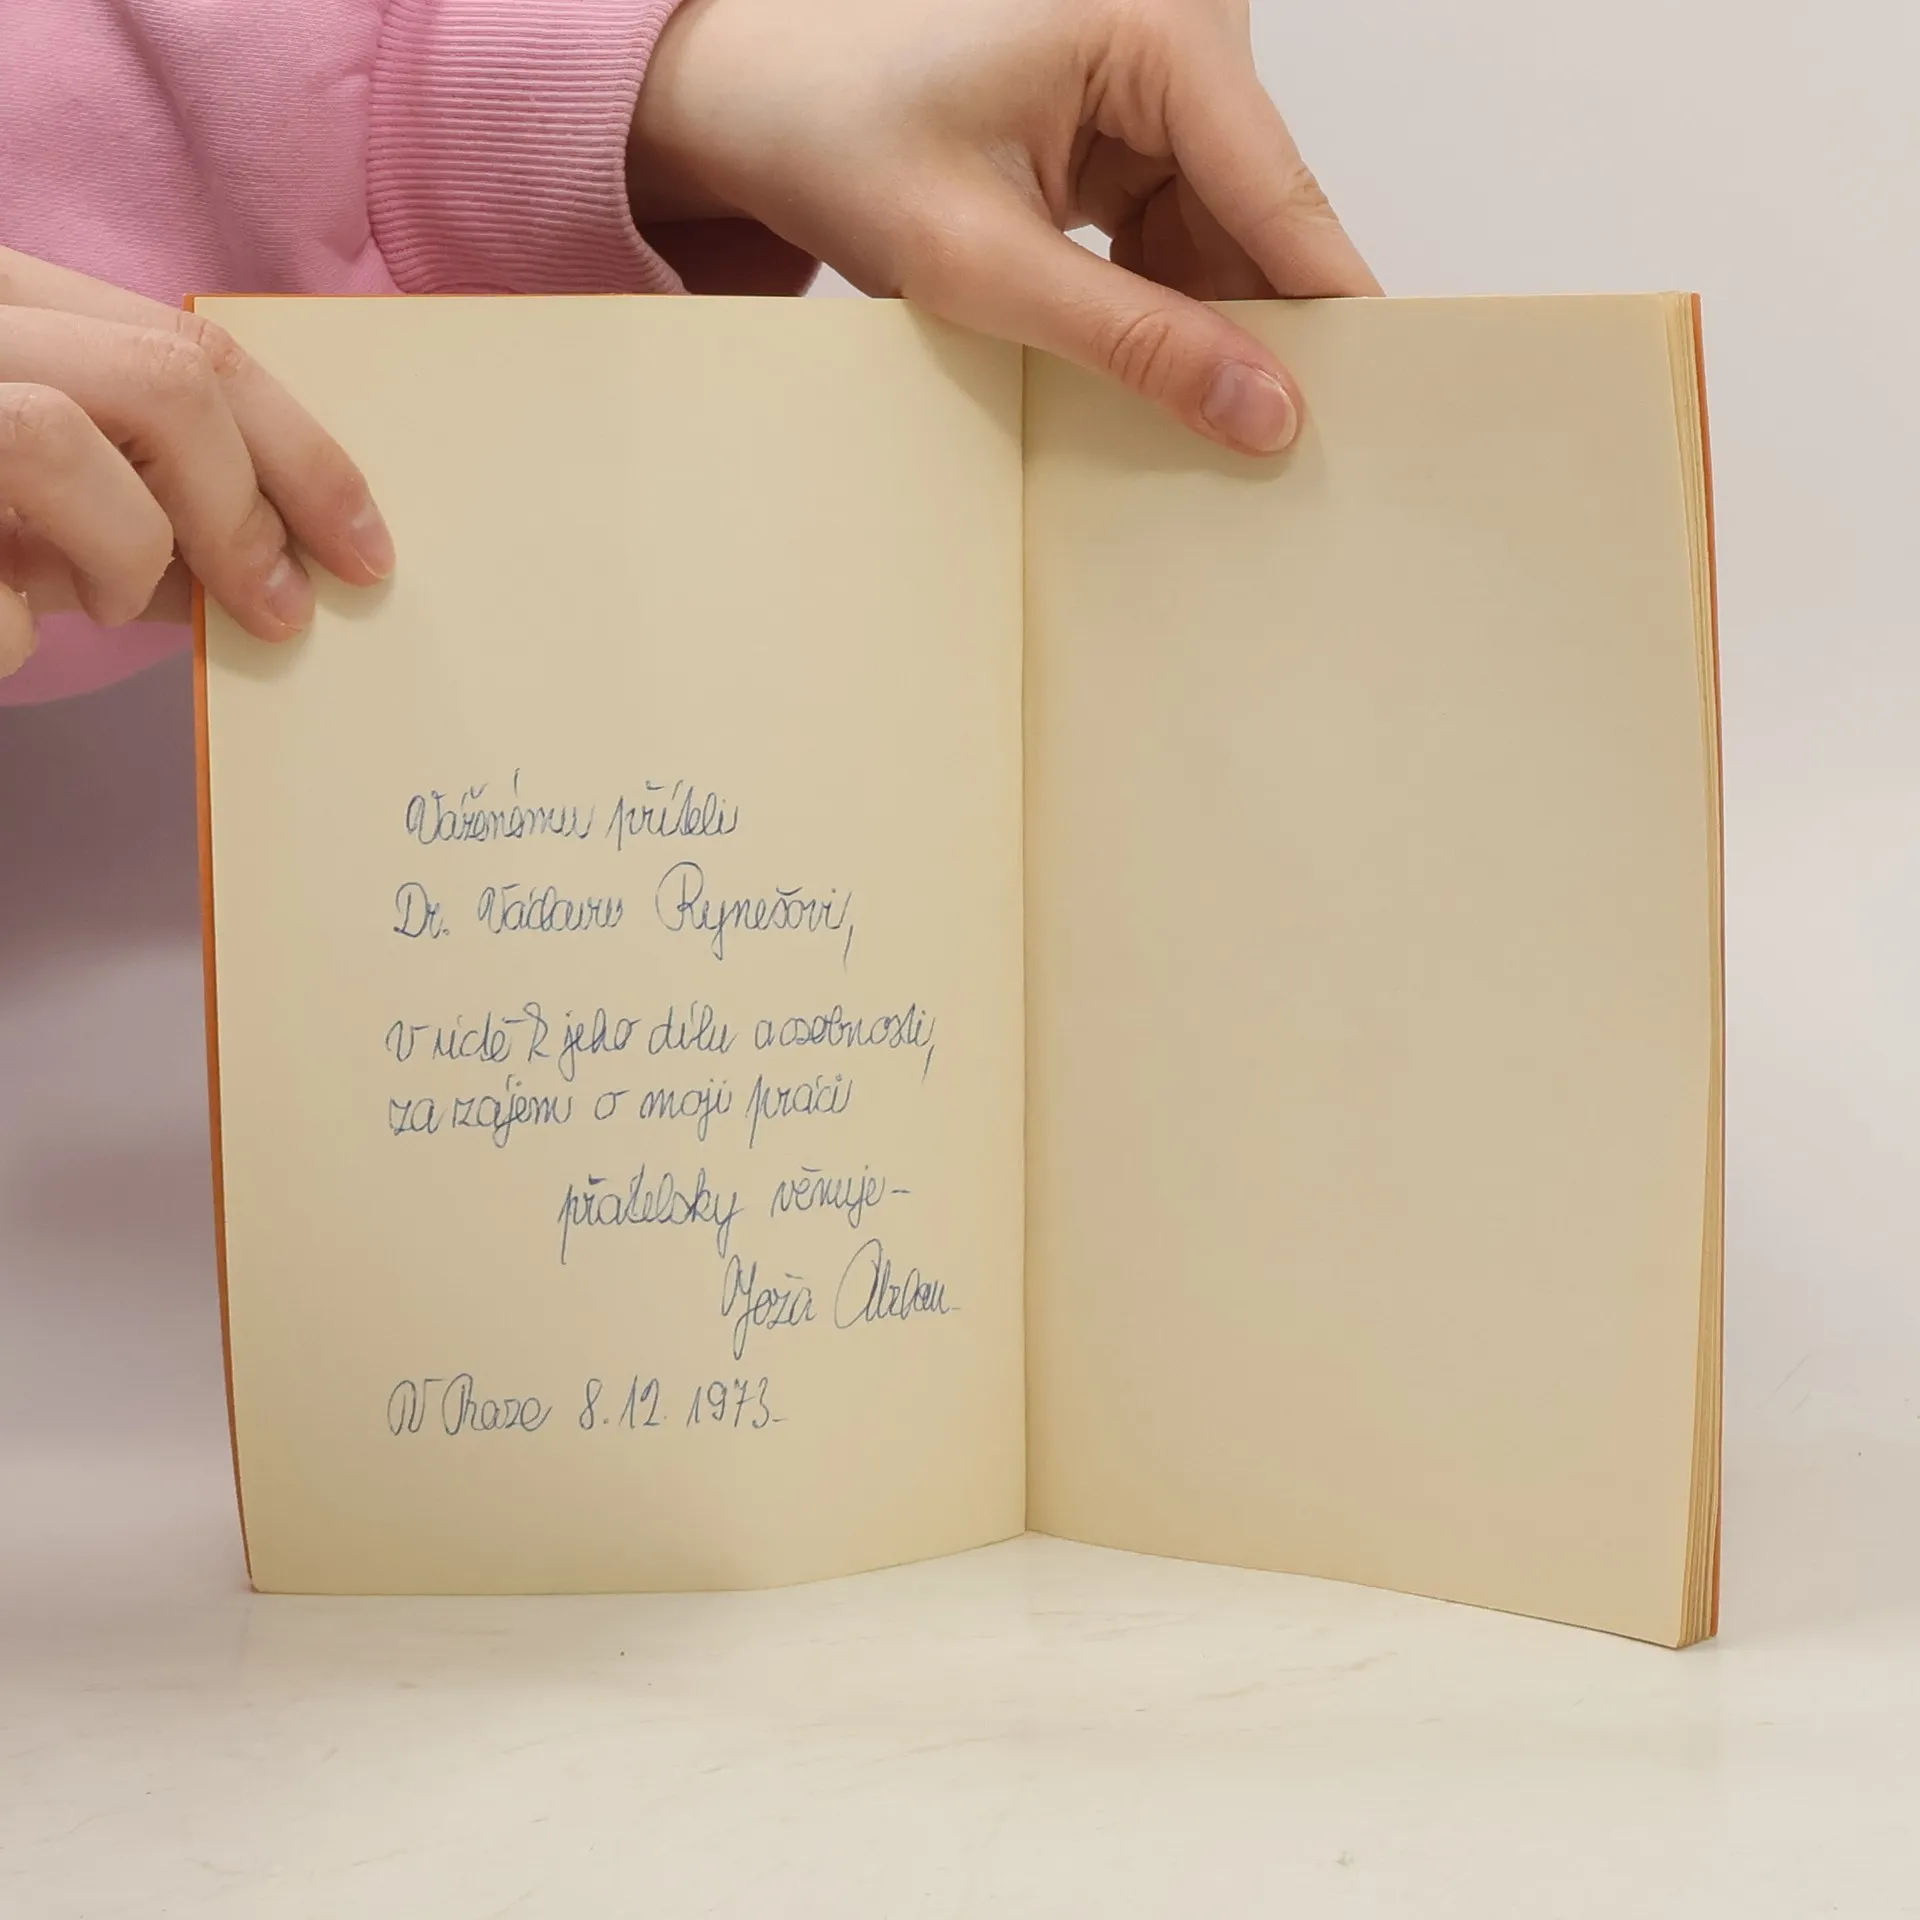 Váženému příteli
Dr. Václavu Rynešovi,
v úctě k jeho dílu a osobnosti,
za zájem o moji práci
přátelsky věnuje -
Joža
V Praze 8. 12. 1973 -